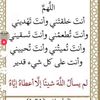 اللهم
أنت خلقتني وأنت تهديني
وأنت تطعمني وأنت تسقيني
وأنت تميتني وأنت تحييني
وأنت على كل شيء قدير
لم يسأل الله شيئا إلا أعطاه إياه